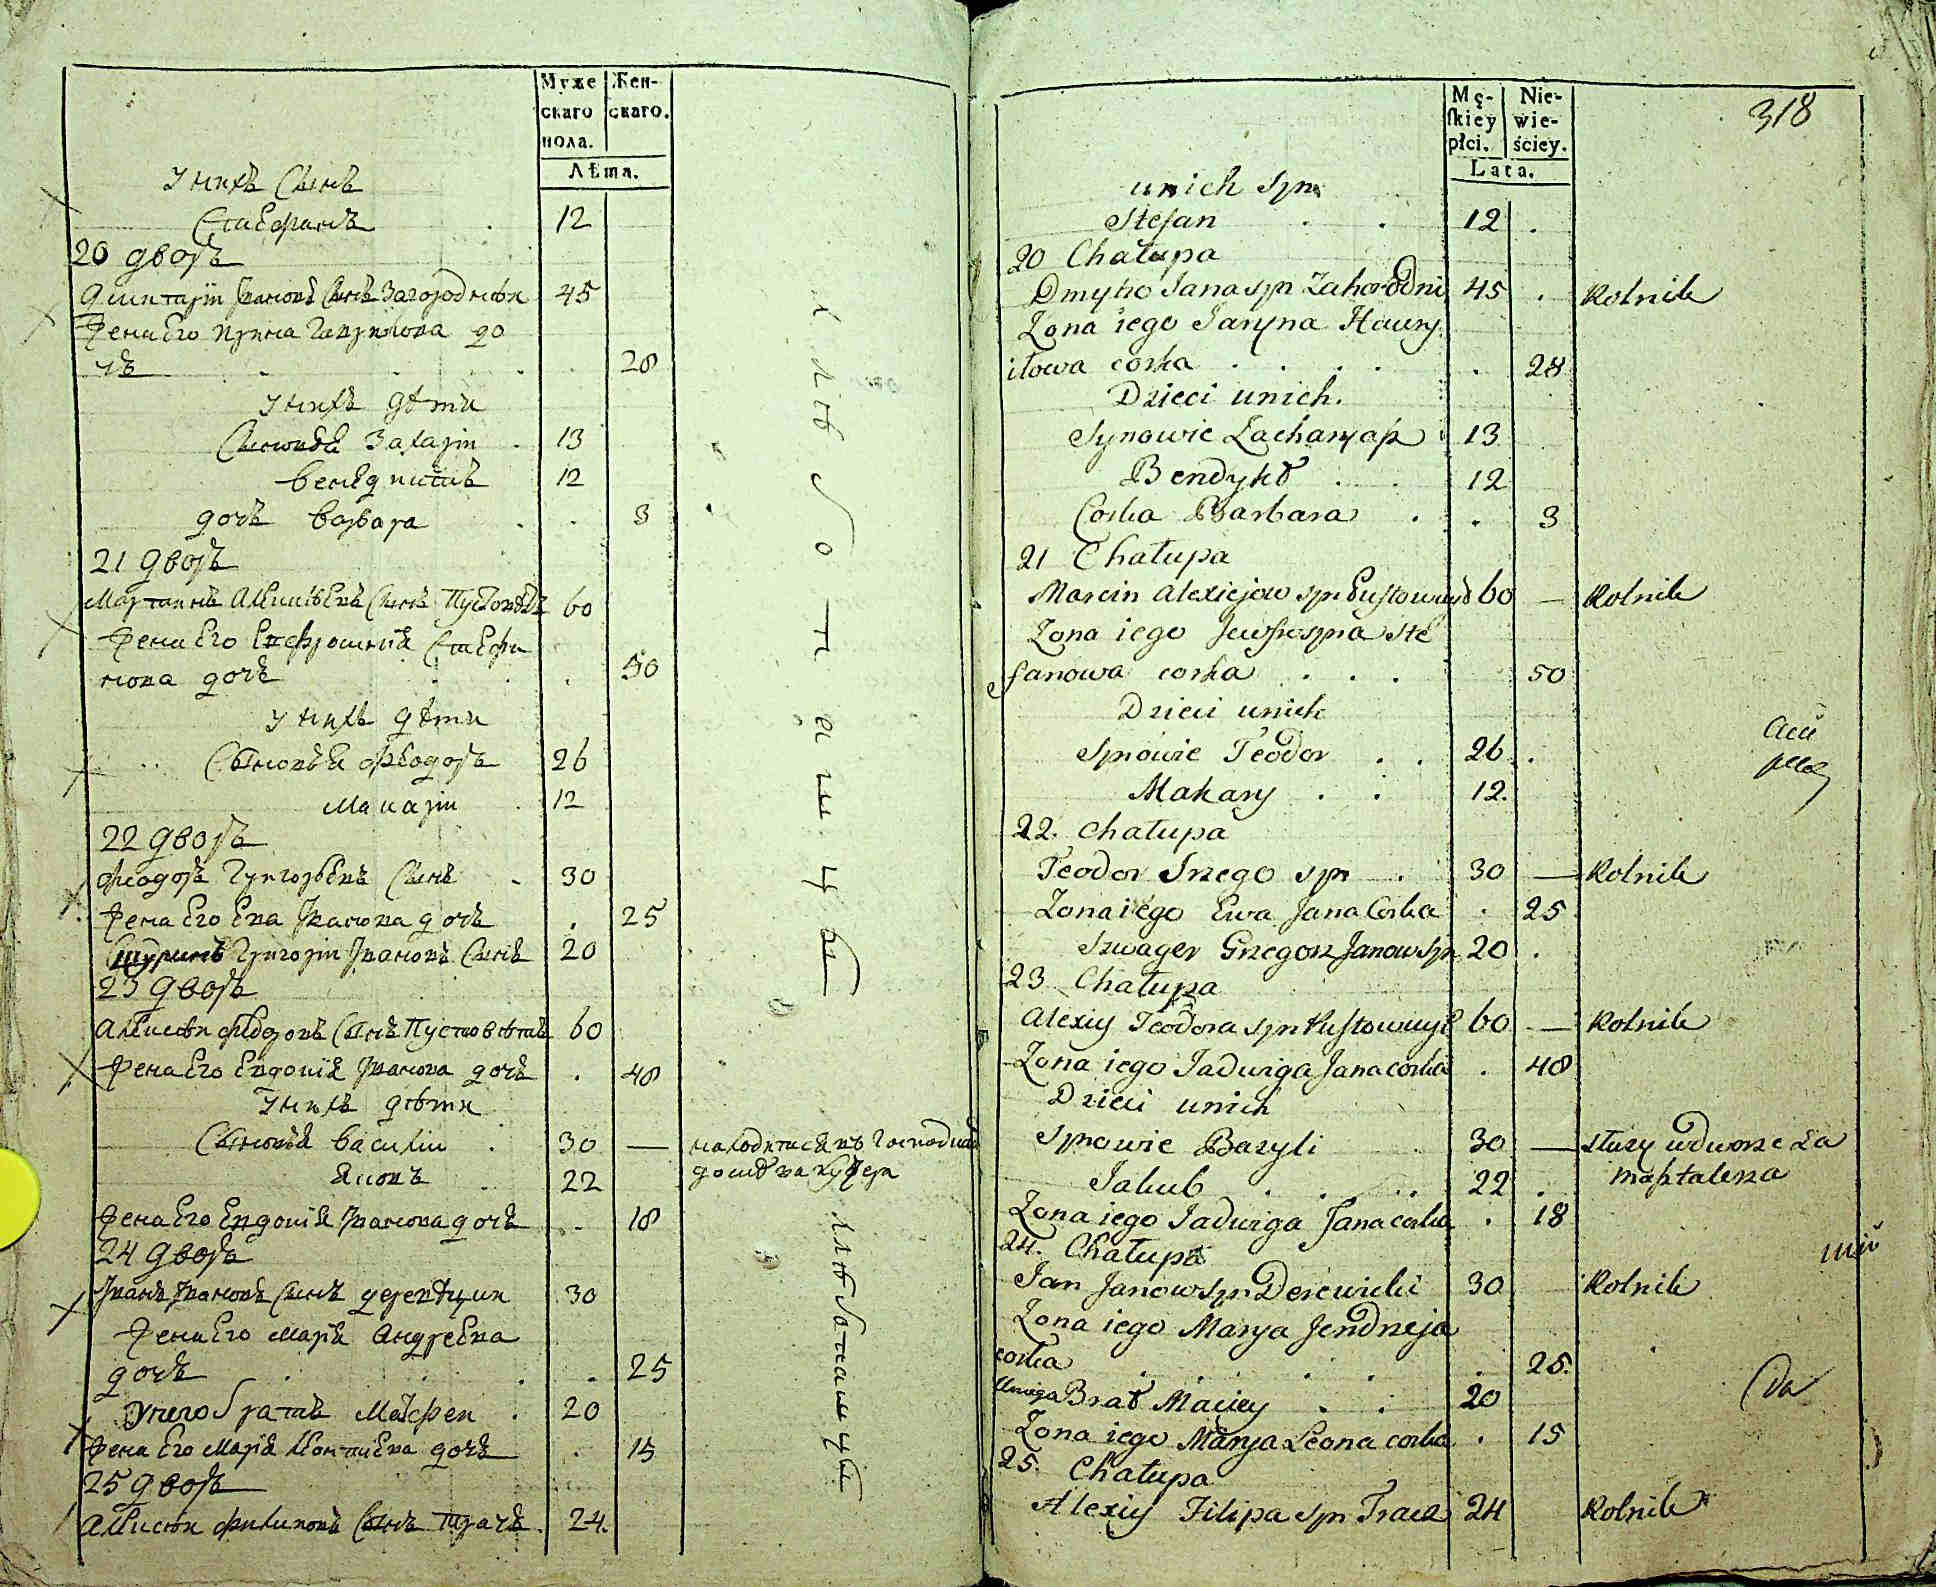 Муже
скаго
пола.
Жен-
скаго.
Лѣта.
У нихъ Сынъ
Стефанъ 12
20 дворъ
Дмитрій Ивановъ Сынъ Загороднюк 45
Жена Его Ирина Гаврилова до
чь 28
У нихъ дѣти
Сыновья Захарій 13
Венедиктъ 12
дочь Варвара 3
21 дворъ
Мартинъ Алексѣевъ Сынъ Пустовѣтъ 60
Жена Его Евфросинія Стефа
нова дочь 50
У нихъ дѣти
Сыновья Феодоръ 26
Макарій 12
22 дворъ
Феодоръ Григорьевъ Сынъ 30
Жена Его Ева Иванова дочь 25
Шуринъ Григорій Ивановъ Сынъ 20
23 дворъ
Алексѣй Федоровъ Сынъ Пустовѣтъ 60
Жена Его Евдокія Иванова дочь 48
У нихъ дѣти
Сыновья Василій 30 —
Яковъ 22
Жена Его Евдокія Иванова дочь 18
24 дворъ
Иванъ Ивановъ Сынъ 30
Жена Его Марія Андреева
дочь 25
У него братъ Матфей 20
Жена Его Марія Леонтіева дочь 15
25 дворъ
Алексѣй Филиповъ Сынъ Трачъ 24.
находится въ Господском
доме за кучера
хлѣбопашцы
хлѣбопашцы
318
Mę-
skiey
płci.
Nie-
wie-
ściey.
Lata.
unich syn
Stefan 12
20 Chałupa
Dmytro Jana syn Zahorodni 45 Rolnik
Zona iego Jaryna Hawry
iłowa corka 28
Dzieci unich.
Synowie Zacharyasz 13
Bendykt 12
Corka Barbara 3
21 Chałupa
Marcin Alexiejow syn Pustowuyt 60 — Rolnik
Zona iego Jewfrozyna Ste
fanowa corka 50
Dzieci unich
Synowie Teodor 26
Makary 12.
22. Chałupa
Teodor Hrego syn 30 — Rolnik
Zona iego Ewa Jana Corka 25
Szwager Grzegorz Janow syn 20
23 Chałupa
Alexiy Teodora syn Pustowuyt 60 — Rolnik
Zona iego Jadwiga Jana corka 48
Dzieci unich
Synowie Bazyli 30 — słuzy wdworze za
masztalerza
Jakub 22
Zona iego Jadwiga Jana corka 18
24. Chałupa
Jan Janow syn Derewicki 30 Rolnik
Zona iego Marya Jendrzeja
corka 25.
Unieго Brat Maciey 20
Zona iego Marya Leona corka 15
25. Chałupa
Alexiy Filipa syn Tracz 24 Rolnik